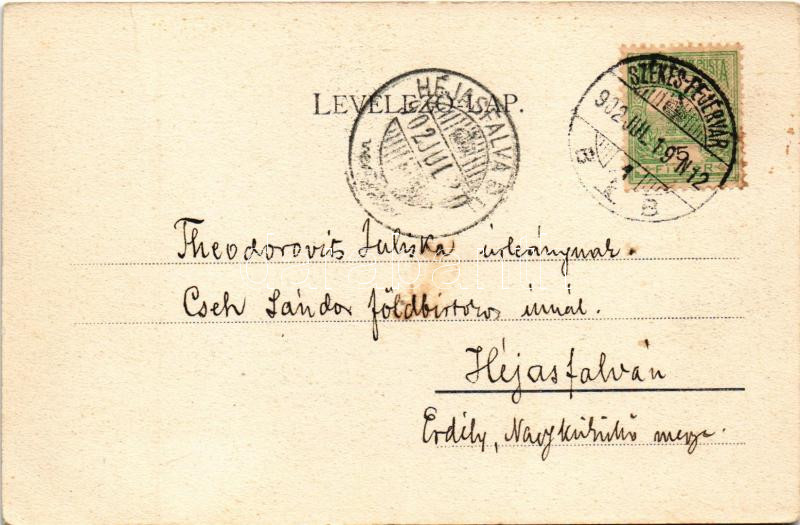 LEVELEZŐ-LAP.
HÉJASFALVA
902 JUL 20
SZÉKES-FEJÉRVÁR
902 JUL 19 N 12
B
5
Theodorovits Juliska úrleánynak.
Cseh Sándor földbirtokos úrnál.
Héjasfalván
Erdély, Nagyküküllő megye.